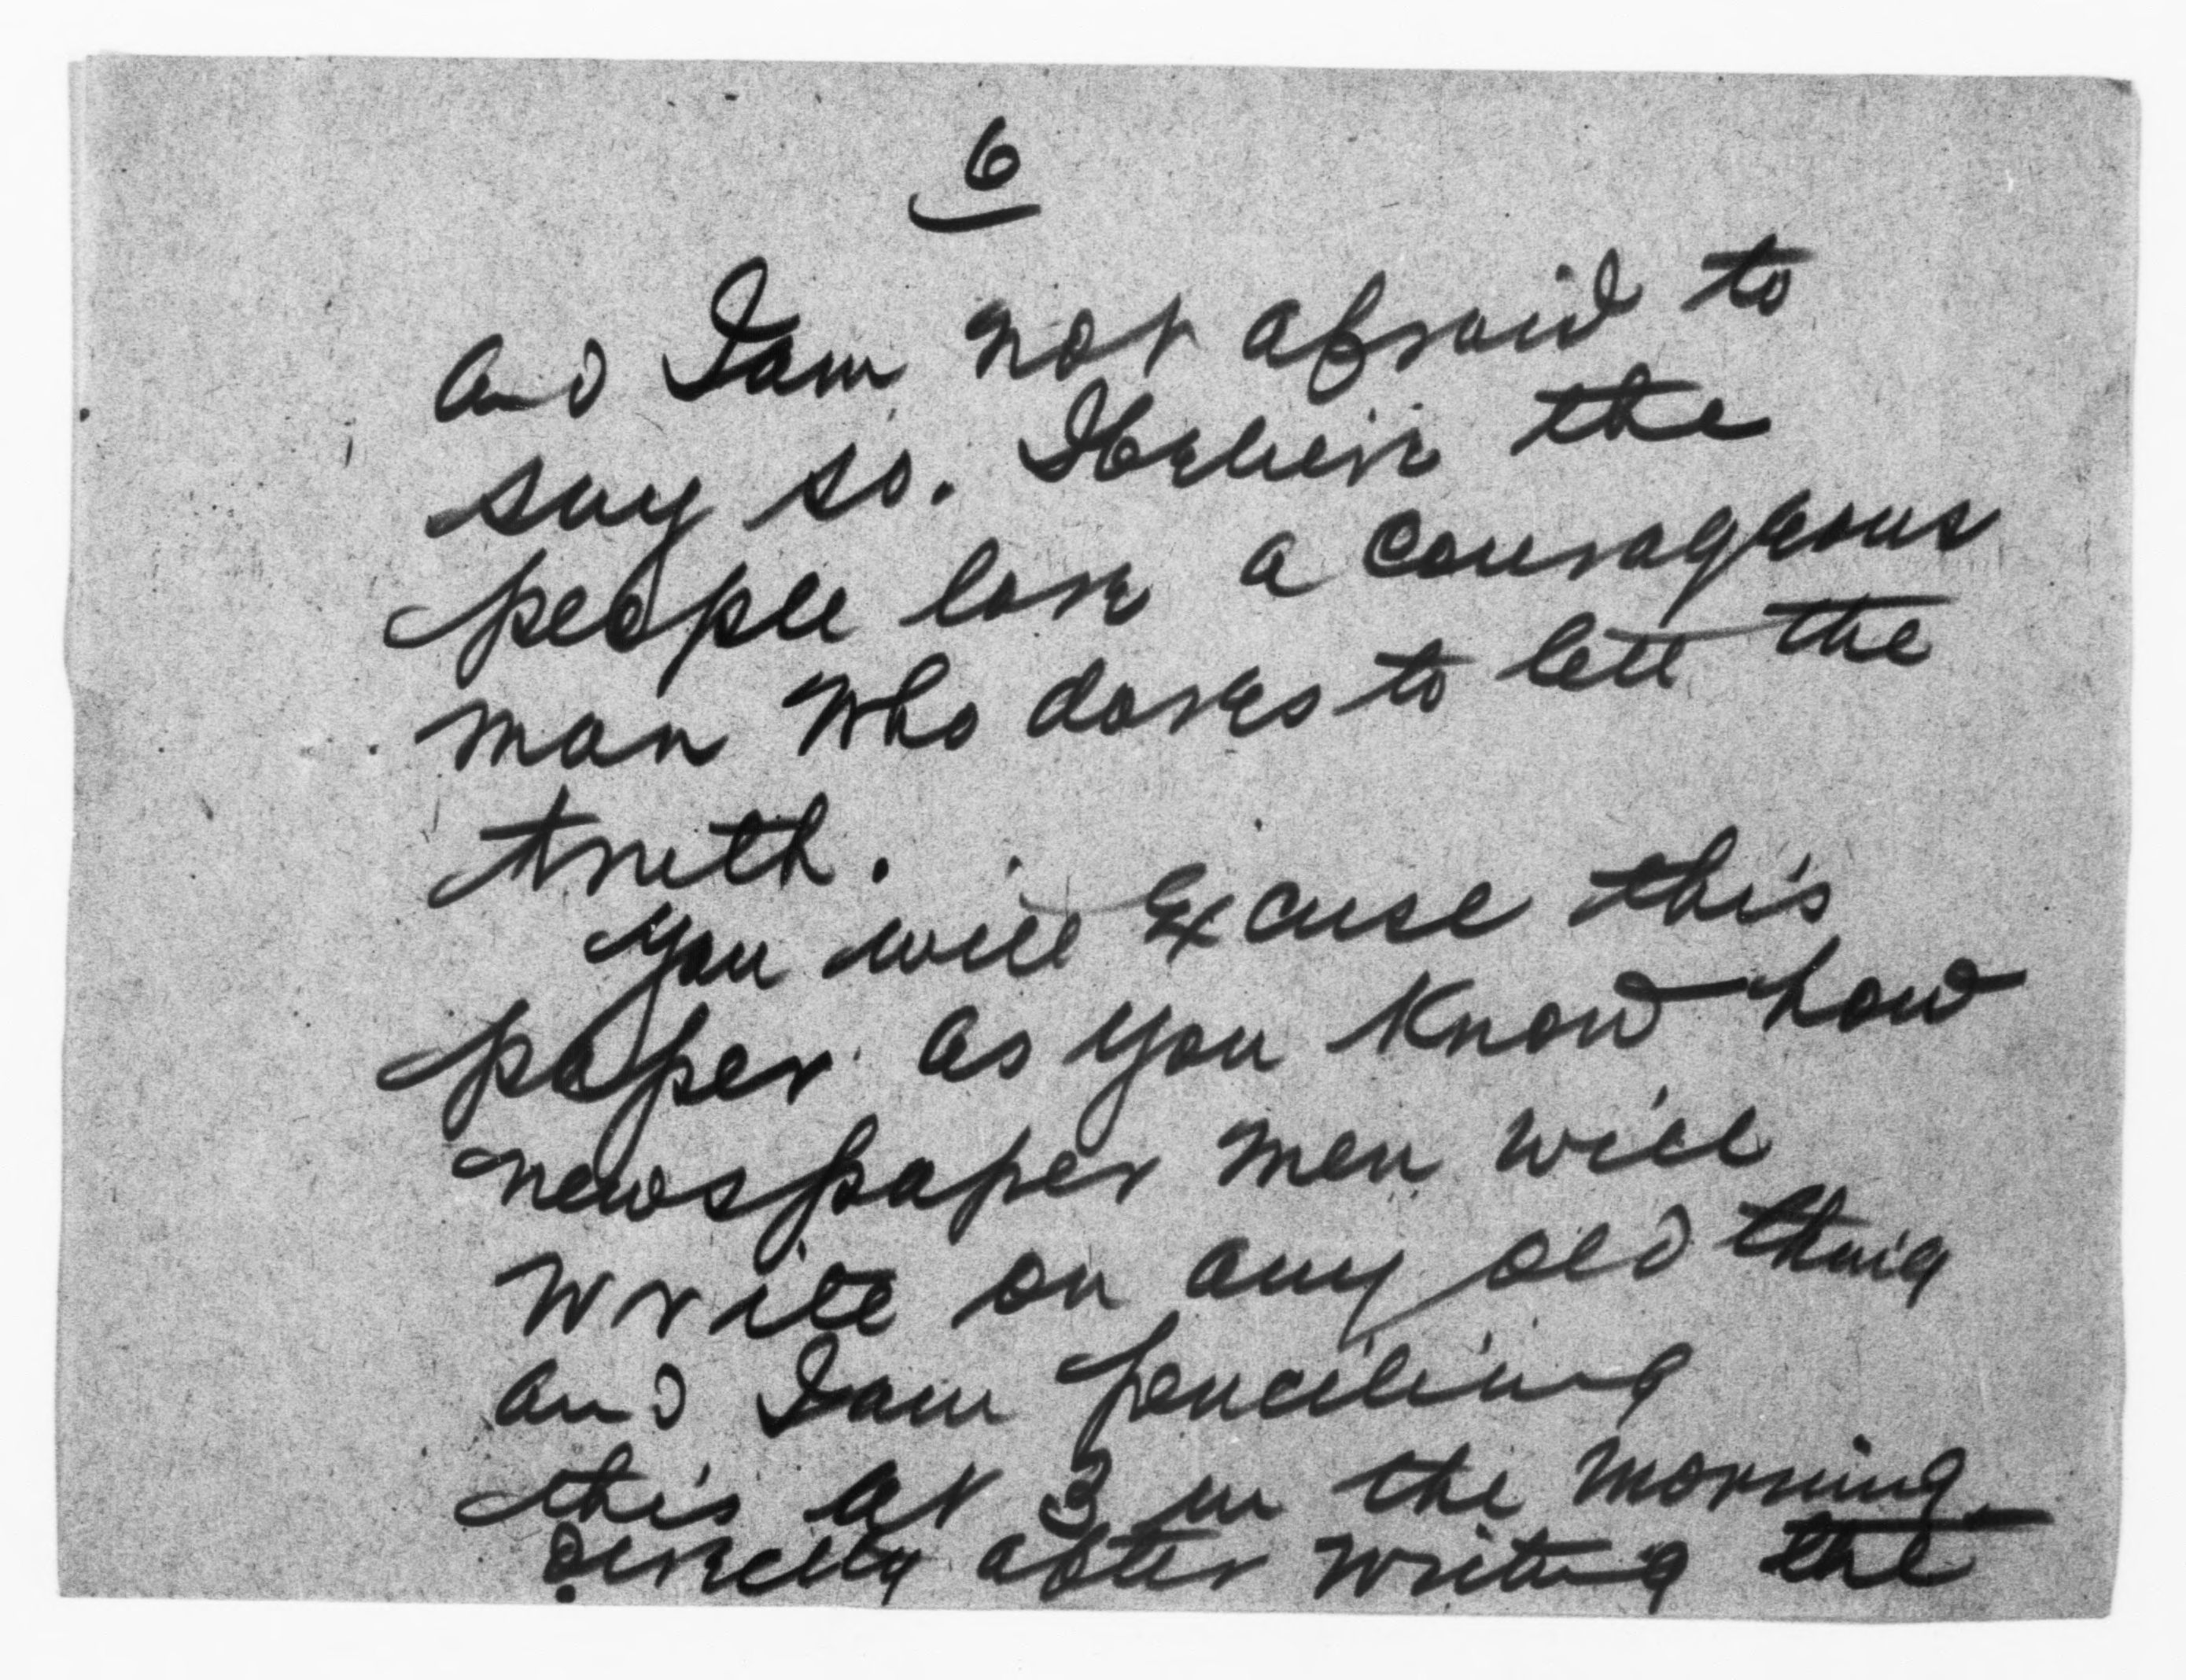 6
and I am not afraid to
say so. I believe the
people love a courageous
man who dares to tell the
truth.
You will excuse this
paper as you know how
newspaper men will
write on any old thing
and I am penciling
this at 3 in the morning
directly after writing the